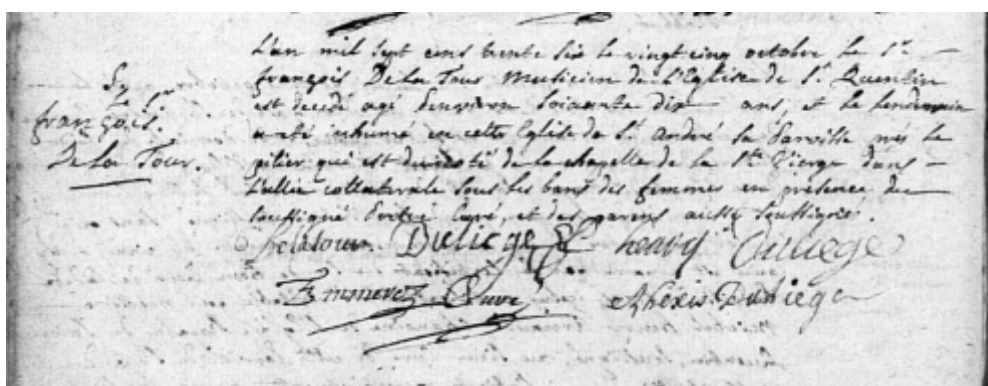 Sr
françois
De la Tour.
L'an mil sept cens trente six le vingt cinq octobre le Sr
françois De la Tour Musicien de l'Eglise de St Quentin
est decedé agé d'environ soixante dix ans, et le lendemain
a eté inhumé en cette Eglise de St André sa paroisse prés le
pilier qui est du coté de la chapelle de la Ste Vierge dans
l'allée collaterale sous les bans des femmes en presence du
soussigné Curé, et des parens aussi soussignés.
Delatour Duliege Duliege
Emmerez Curé Alexis Duliege